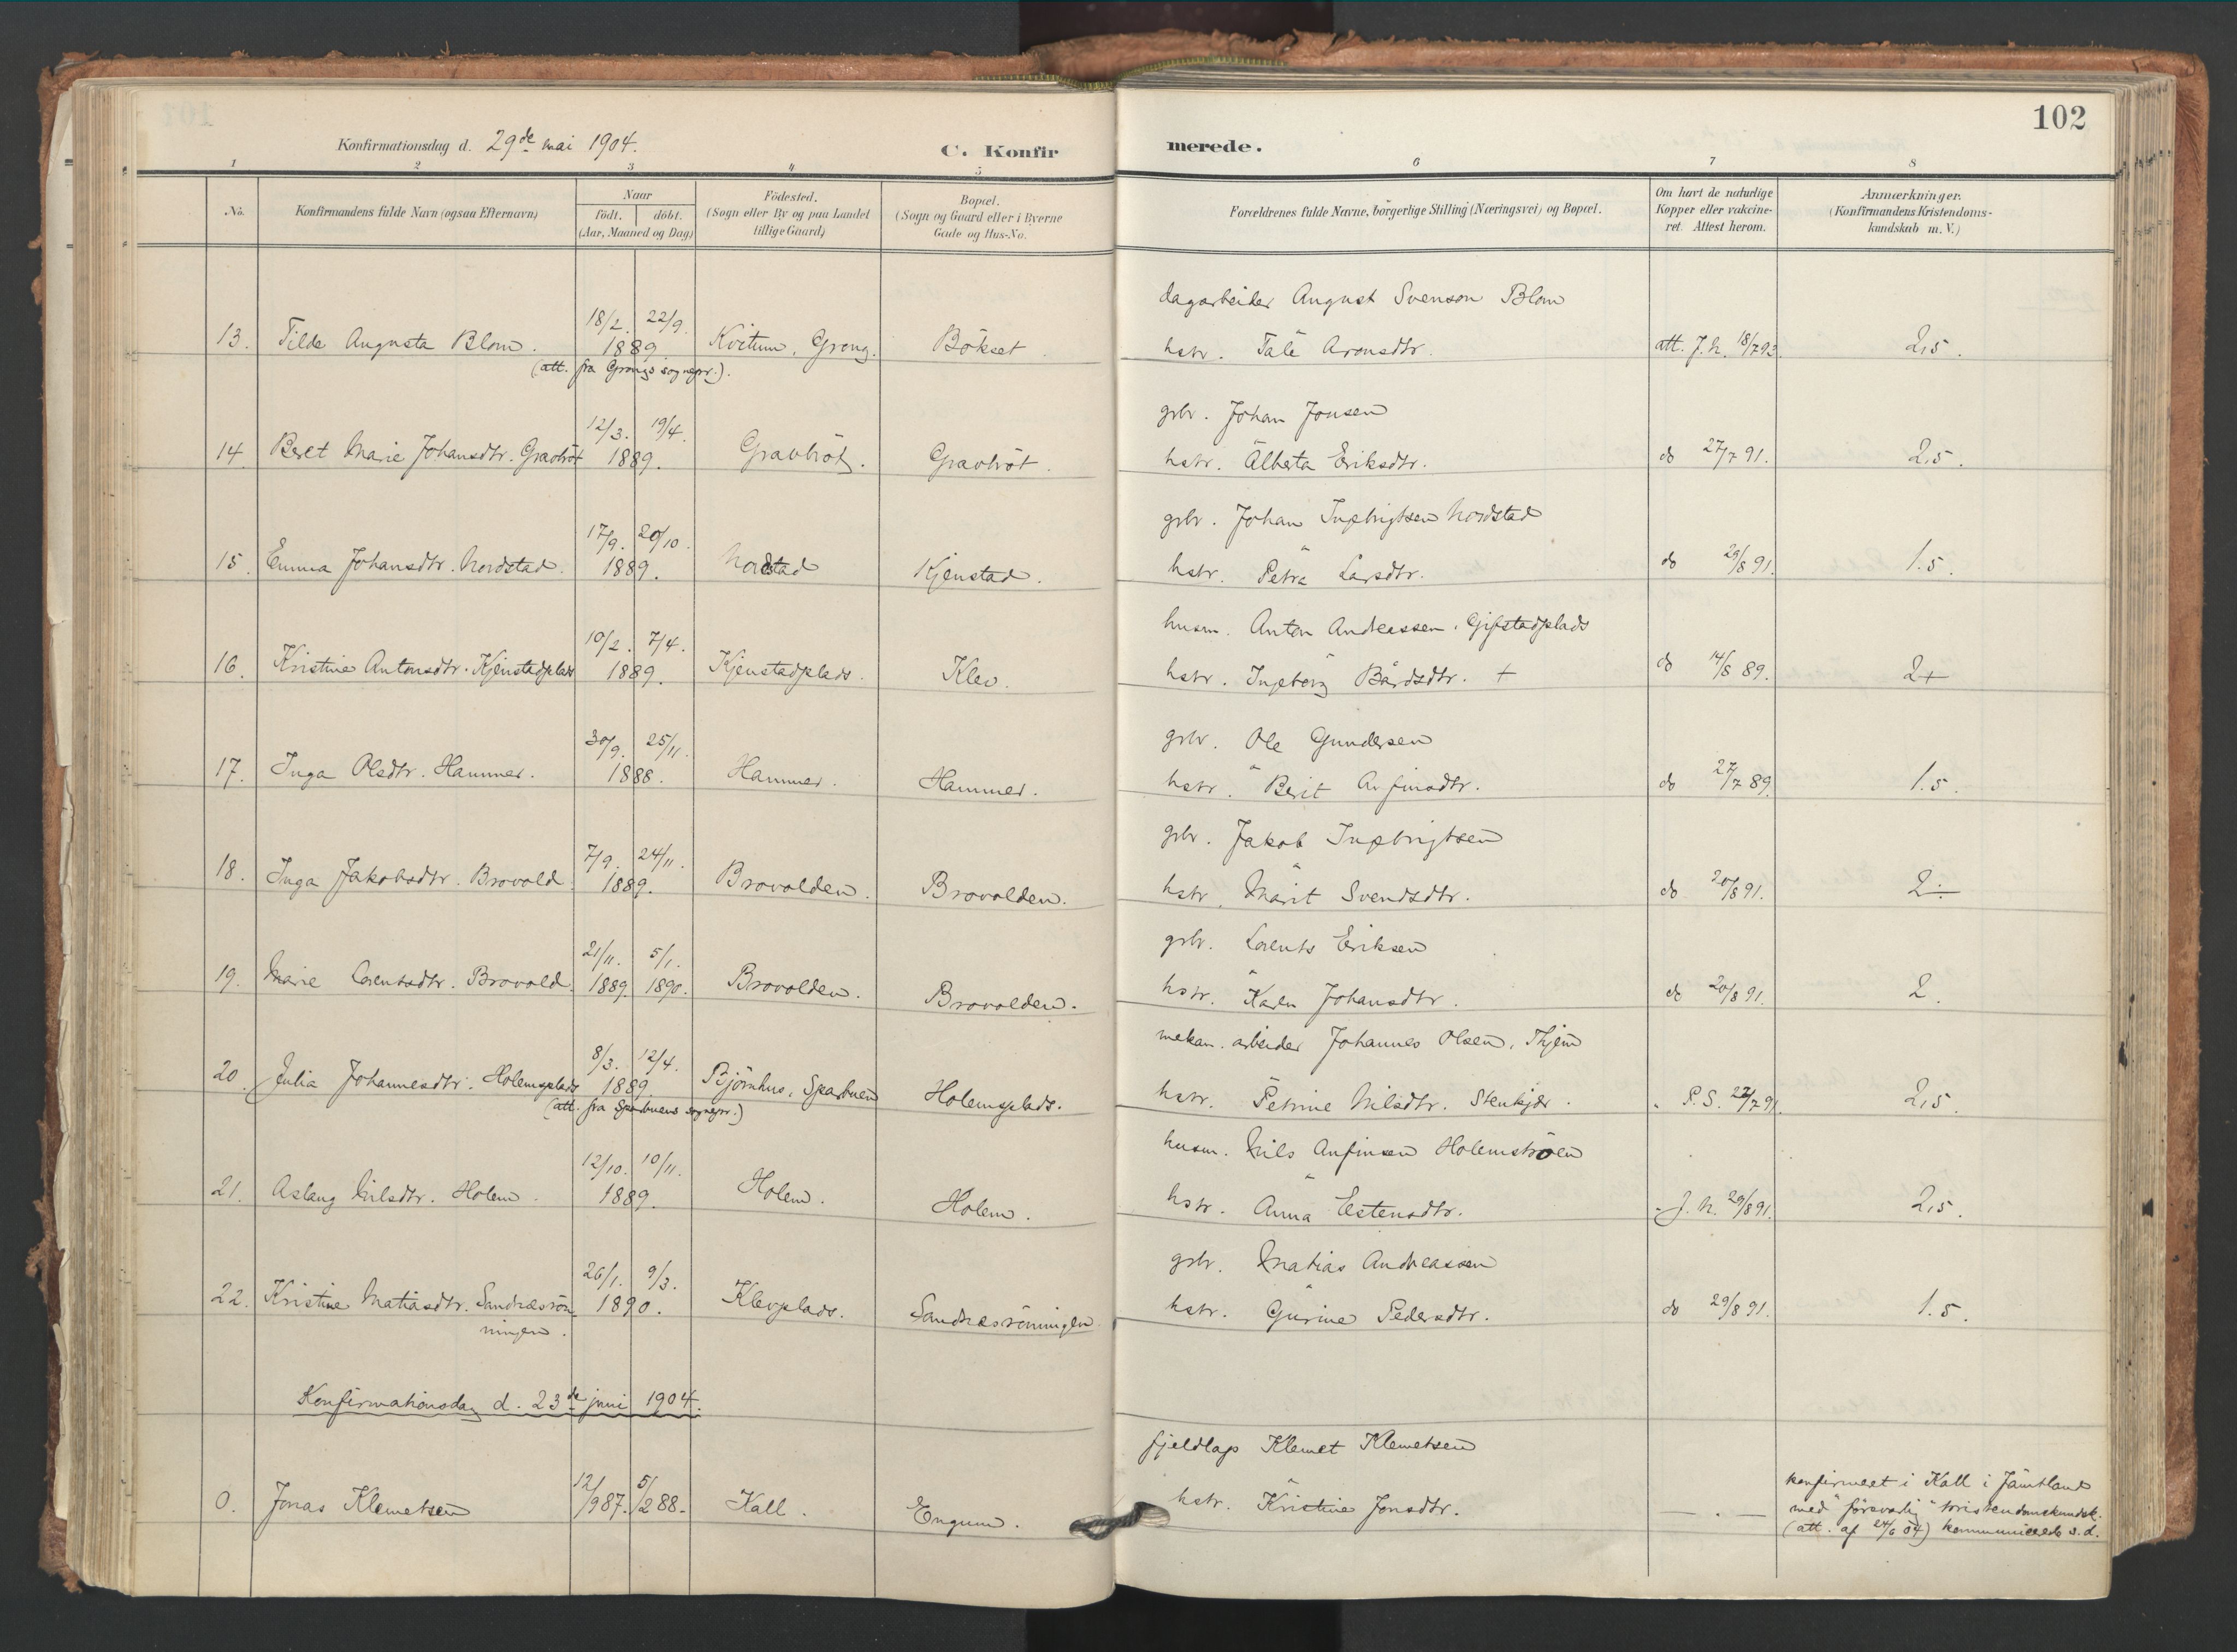 102
Konfirmationsdag d. 29de mai 1904.
C. Konfirmerede.
1 2 3 4 5 6 7 8
No.
Konfirmandens fulde Navn (ogsaa Efternavn)
Naar
födt. döbt.
(Aar, Maaned og Dag)
Födested.
(Sogn eller By og paa Landet
tillige Gaard)
Bopæl.
(Sogn og Gaard eller i Byerne
Gade og Hus-No.
Forældrenes fulde Navne, börgerlige Stilling (Næringsvei) og Bopæl.
Om havt de naturlige
Kopper eller vakcine-
ret. Attest herom.
Anmærkninger.
(Konfirmandens Kristendoms-
kundskab m. V.)
dagarbeider August Svenson Blom
18/2. 22/9.
13. Tilda Augusta Blom. 1889 Kvitum, Grong. Bökset. hstr. Tale Aronsdtr. att. J. N. 18/7 93. 2,5.
(att. fra Grongs sognepr.).
grbr. Johan Jonsen
12/3. 19/4.
14. Beret Marie Johansdtr. Gravbröt 1889. Gravbröt. Gravbröt. hstr. Alberta Eriksdtr. do 27/7 91. 2,5.
grbr. Johan Ingebrigtsen Nordstad
17/9. 20/10.
15. Emma Johansdtr. Nordstad. 1889. Nordstad Kjenstad. hstr. Petra Larsdtr. do 29/8 91. 1.5.
husm. Anton Andreassen, Gifstadplads
10/2. 7/4.
16. Kristine Antonsdtr. Kjenstadplads 1889. Kjenstadplads. Klev. hstr. Ingeborg Bårdsdtr. + do 14/8 89. 2+
grbr. Ole Gundersen
30/9. 25/11.
17. Inga Olsdtr. Hammer. 1888. Hammer. Hammer. hstr. Berit Arfinsdtr. do 27/7 89. 1.5.
grbr. Jakob Ingebrigtsen
7/9. 24/11.
18. Inga Jakobsdtr. Brovold. 1889. Brovolden. Brovolden. hstr. Marit Svendsdtr. do 20/8 91. 2÷
grbr. Lorents Eriksen
21/11. 5/1.
19. Marie Lorentsdtr. Brovold. 1889. 1890. Brovolden. Brovolden. hstr. Karen Johansdtr. do 20/8 91. 2.
mekan. arbeider Johannes Olsen, Thjem
8/3. 12/4.
20. Julia Johannesdtr. Holemsplads 1889. Björnhus, Sparbuen Holemsplads. hstr. Petrine Nilsdtr. Stenkjær. " P. S. 22/7 91. 2,5.
(att. fra Sparbuens sognepr.)
husm. Nils Anfinsen Holemströen
12/10. 10/11.
21. Aslaug Nilsdtr. Holem. 1889. Holem. Holem. hstr. Anna Estensdtr. " J. N. 29/8 91. 2,5.
grbr. Matias Andreassen
26/1. 9/3.
22. Kristine Matiasdtr. Sandnæsrön- 1890. Klevplads. Sandnæsrönningen hstr. Gurine Pedersdtr. do 29/8 91. 1.5.
ningen.
Konfirmationsdag d. 23de juni 1904.
fjeldlap Klemet Klemetsen
0. Jonas Klemetsen 12/9 87. 5/2 88. Kall. Engum. hstr. Kristine Jonsdtr. — . —
konfirmeret i Kall i Jämtland
med "försvarlig" kristendomskundsk.
(att. af 24/6 04) kommunicerede s. d.